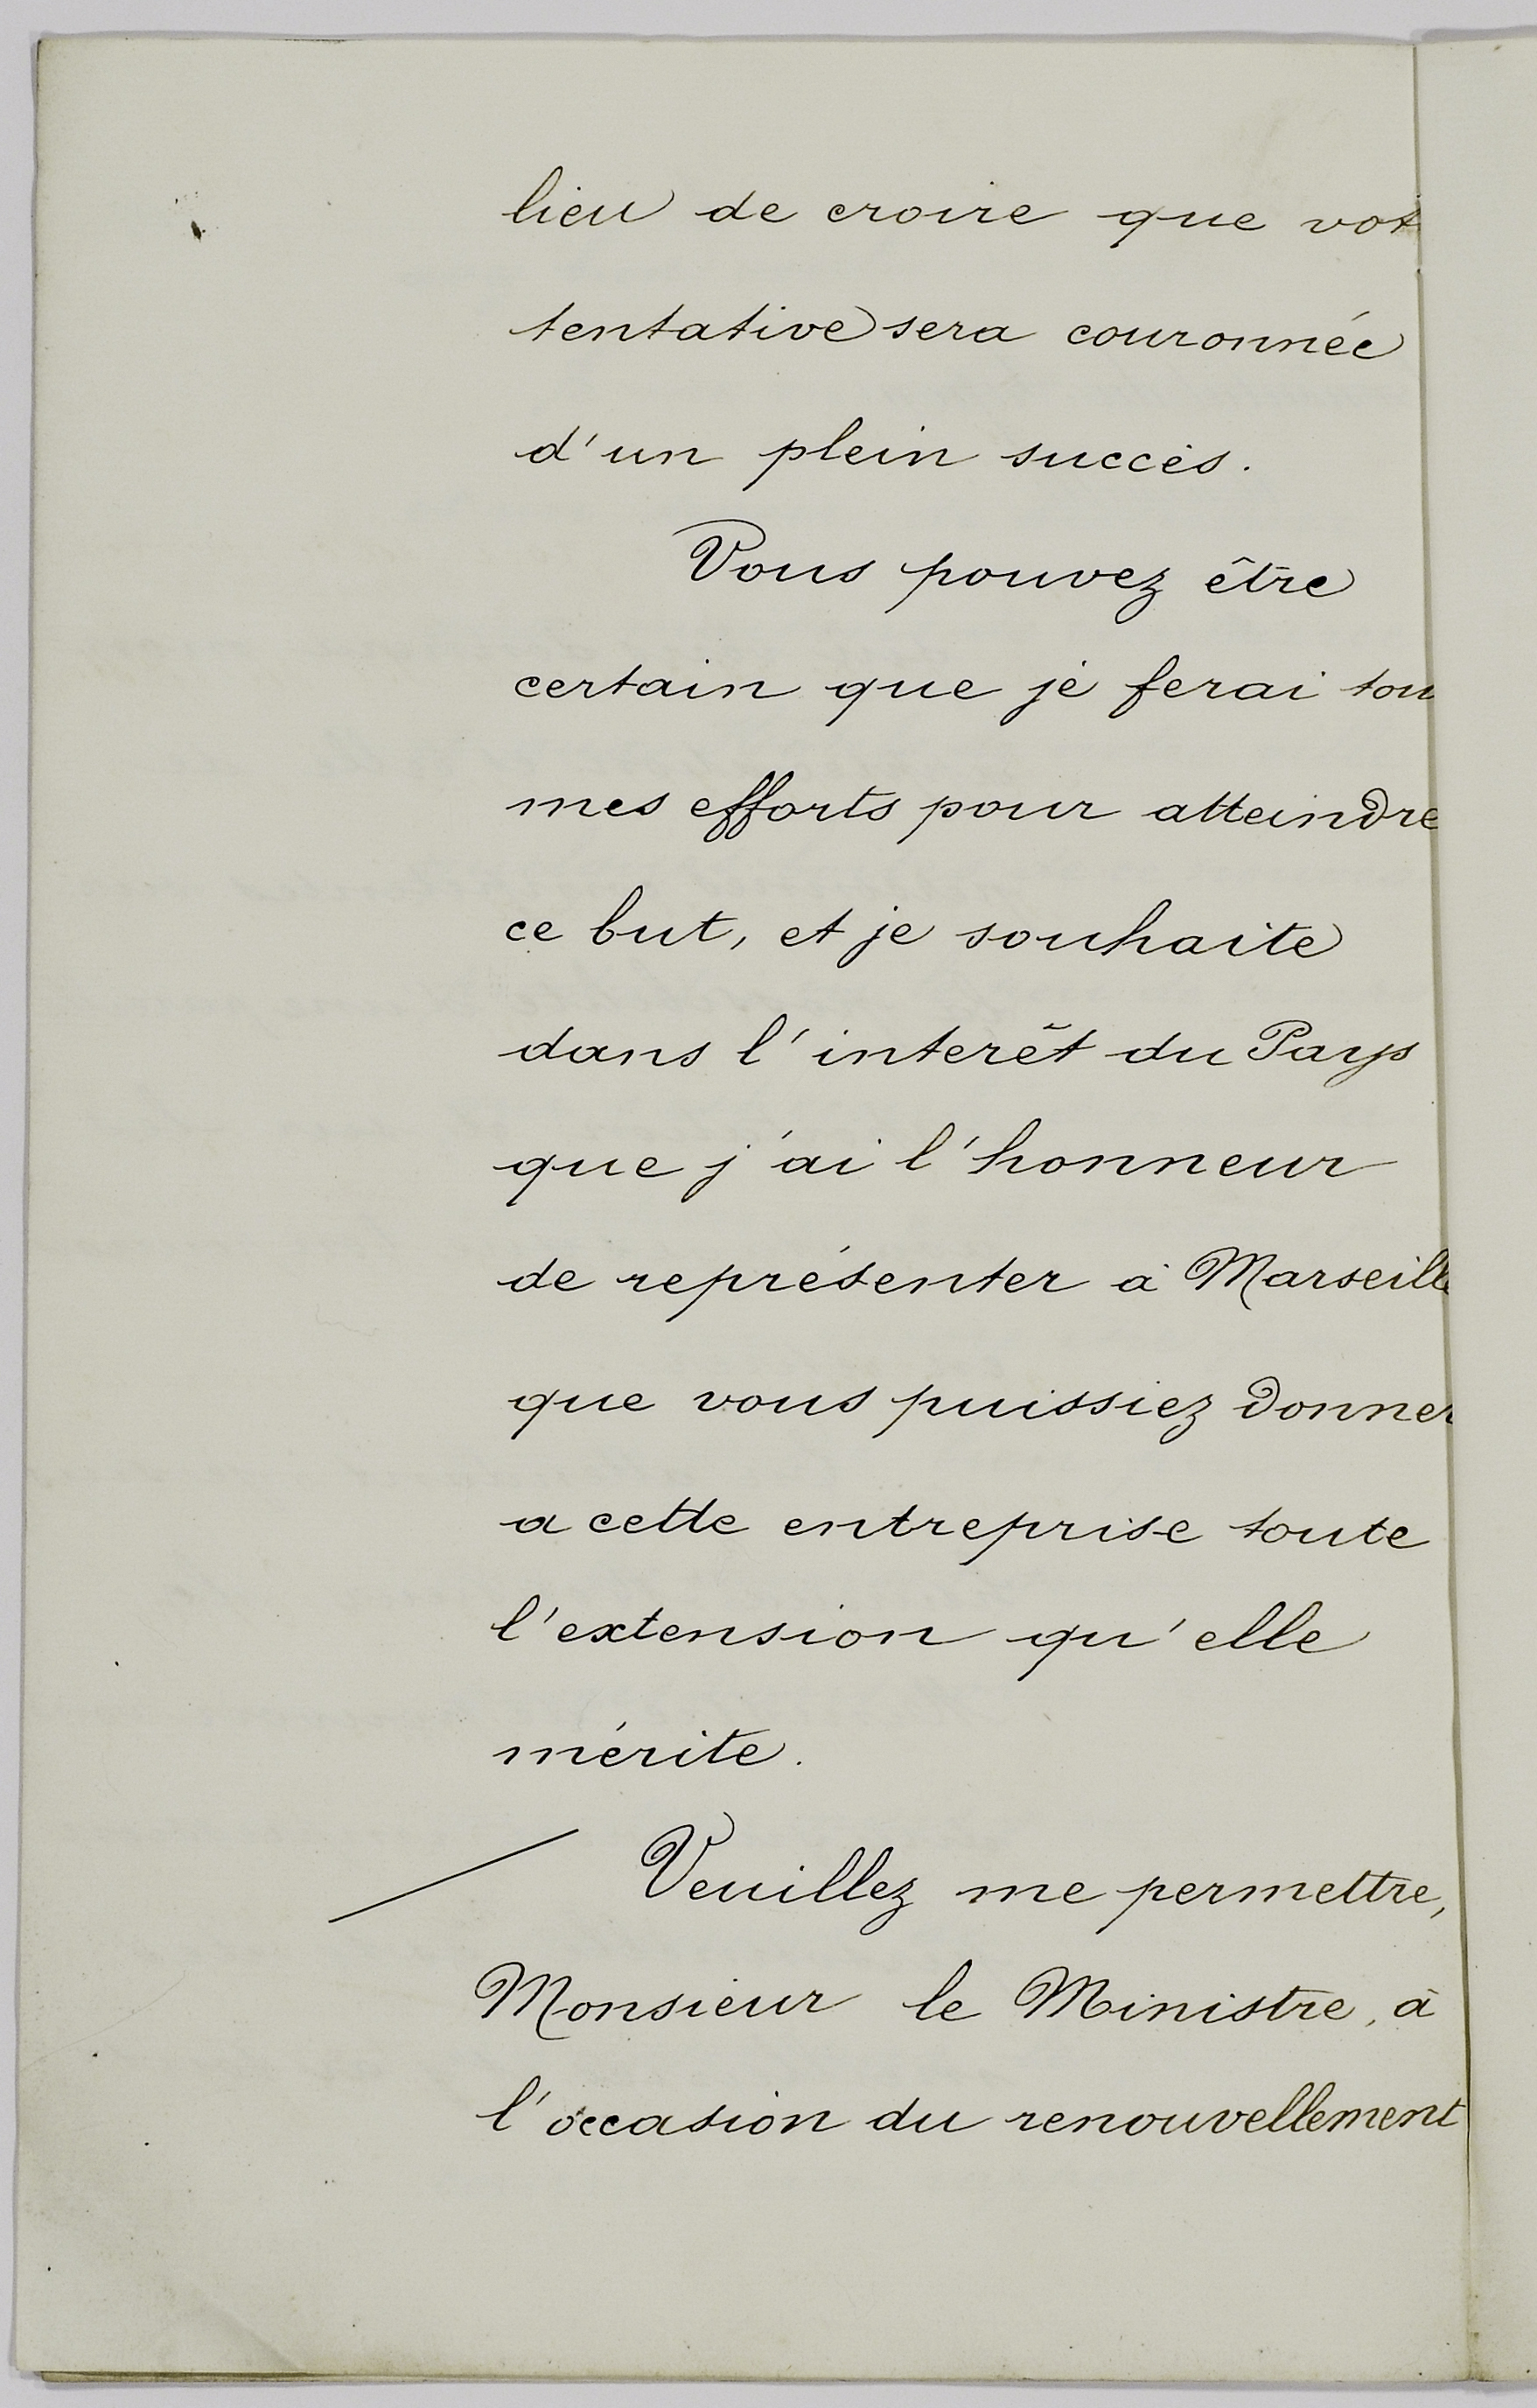 lieu de croire que vot
tentative sera couronnée
d'un plein succès.
Vous pouvez être
certain que je ferai tou
mes efforts pour atteindre
ce but, et je souhaite
dans l'interêt du Pays
que j'ai l'honneur
de représenter à Marseille
que vous puissiez donner
a cette entreprise toute
l'extension qu'elle
mérite.
Veuillez me permettre,
Monsieur le Ministre, à
l'occasion du renouvellement